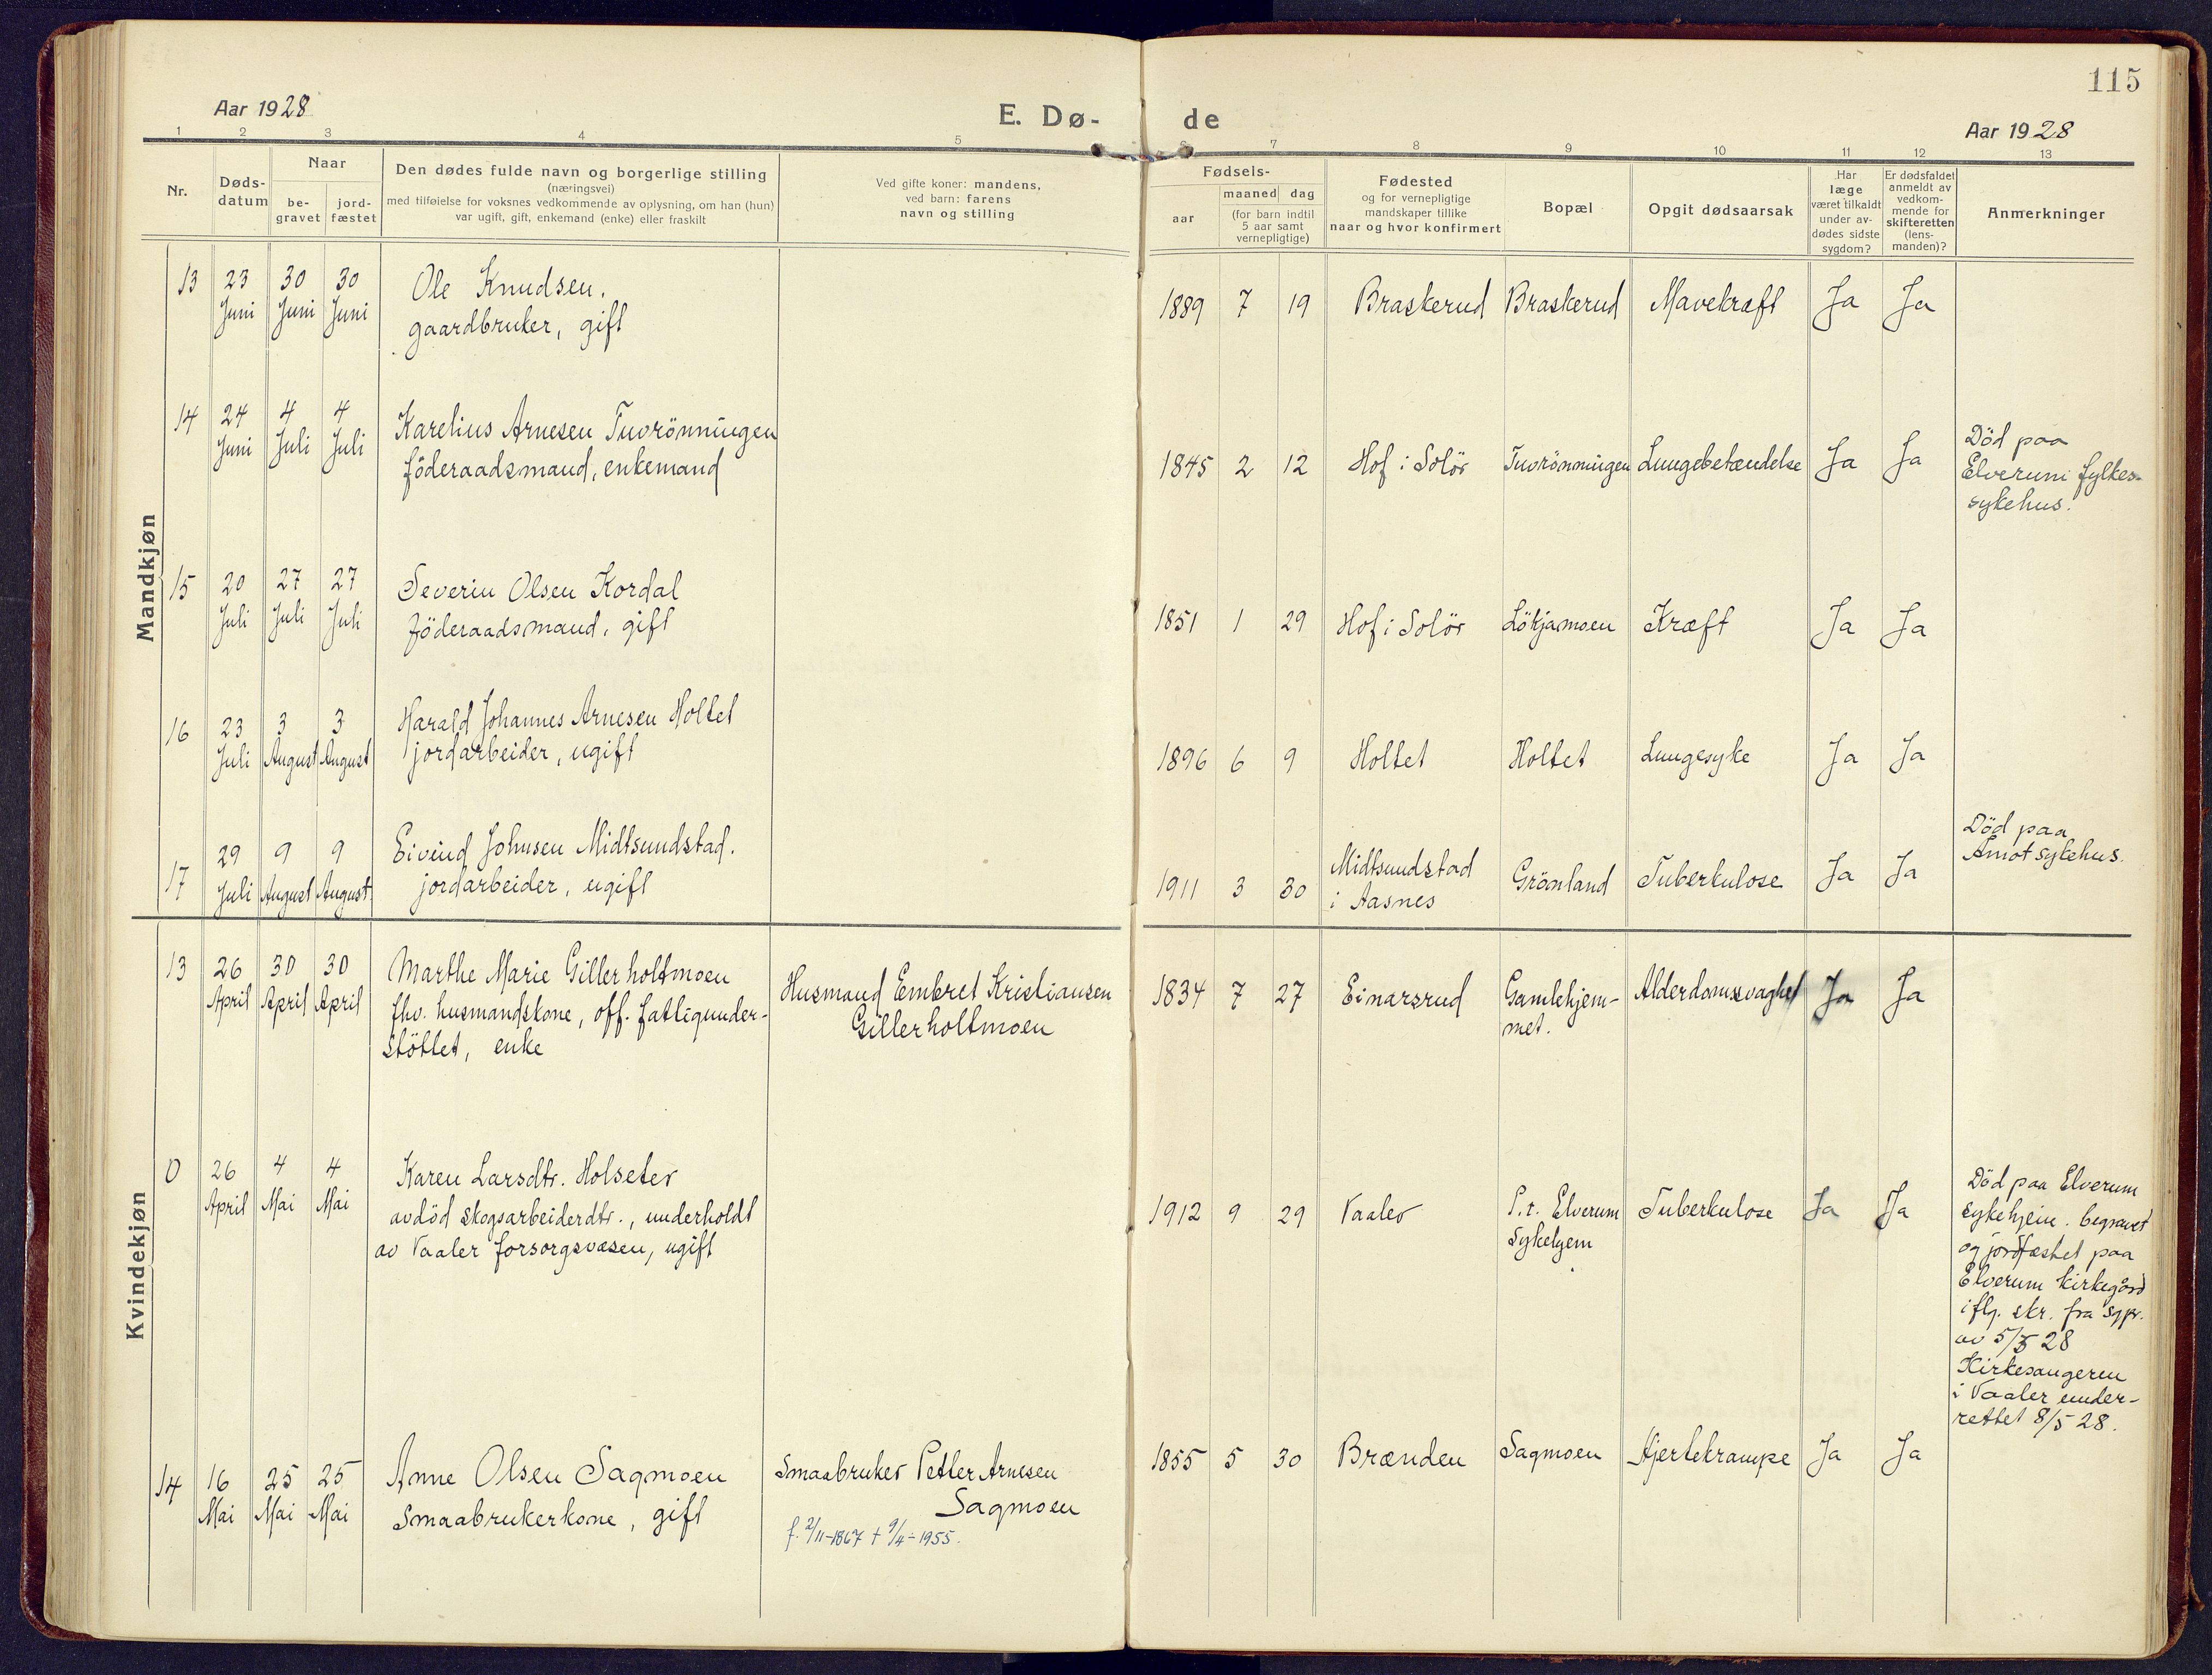 115
Aar 1928
E. Dø-
de
Aar 1928
1 2 3 4 5 6 7 8 9 10 11 12 13
Nr.
Døds-
datum
Naar
be-
gravet
jord-
fæstet
Den dødes fulde navn og borgerlige stilling
(næringsvei)
med tilføielse for voksnes vedkommende av oplysning, om han (hun)
var ugift, gift, enkemand (enke) eller fraskilt
Ved gifte koner: mandens,
ved barn: farens
navn og stilling
Fødsels-
aar
maaned dag
(for barn indtil
5 aar samt
vernepligtige)
Fødested
og for vernepligtige
mandskaper tillike
naar og hvor konfirmert
Bopæl
Opgit dødsaarsak
Har
læge
været tilkaldt
under av-
dødes sidste
sygdom?
Er dødsfaldet
anmeldt av
vedkom-
mende for
skifteretten
(lens-
manden)?
Anmerkninger
Mandkjøn
13 23 30 30 Ole Knudsen. 1889 7 19 Braskerud Braskerud Mavekræft Ja Ja
Juni Juni Juni gaardbruker, gift
14 24 4 4 Karelius Arnesen Tuvrönningen 1845 2 12 Hof i Solör Tuvrönningen Lungebetændelse Ja Ja
Juni Juli Juli föderaadsmand, enkemand
Död paa
Elverum fylkes-
sykehus.
15 20 27 27 Severin Olsen Kordal 1851 1 29 Hof i Solör Lökjamoen Kræft Ja Ja
Juli Juli Juli föderaadsmand, gift
16 23 3 3 Harald Johannes Arnesen Holtet 1896 6 9 Holtet Holtet Lungesyke Ja Ja
Juli August August jordarbeider, ugift
17 29 9 9 Eivind Johnsen Midtsundstad. 1911 3 30 Midtsundstad Grönland Tuberkulose Ja Ja
Juli August August jordarbeider, ugift
i Aasnes
Död paa
Amot sykehus.
Kvindekjøn
13 26 30 30 Marthe Marie Gillerholtmoen Husmand Embret Kristiansen 1834 7 27 Einarsrud Gamlehjem- Alderdomssvaghet Ja Ja
April April April fhv. husmandskone, off. fattigunder- Gillerholtmoen met.
stöttet, enke
0 26 4 4 Karen Larsdtr. Holseter 1912 9 29 Vaaler P.t. Elverum Tuberkulose Ja Ja
April Mai Mai avdöd skogsarbeiderdtr., underholdt Sykehjem
av Vaaler forsorgsvæsen, ugift
Död paa Elverum
sykehjem. begravet
og jordfæstet paa
Elverum kirkegård
iflg. skr. fra sgpr.
av 5/5 28
Kirkesangeren
i Vaaler under-
rettet 8/5 28.
14 16 25 25 Anne Olsen Sagmoen Smaabruker Petter Arnesen 1855 5 30 Brænden Sagmoen Hjertekrampe Ja Ja
Mai Mai Mai Smaabrukerkone, gift Sagmoen
f. 2/11-1867 + 9/4-1955.